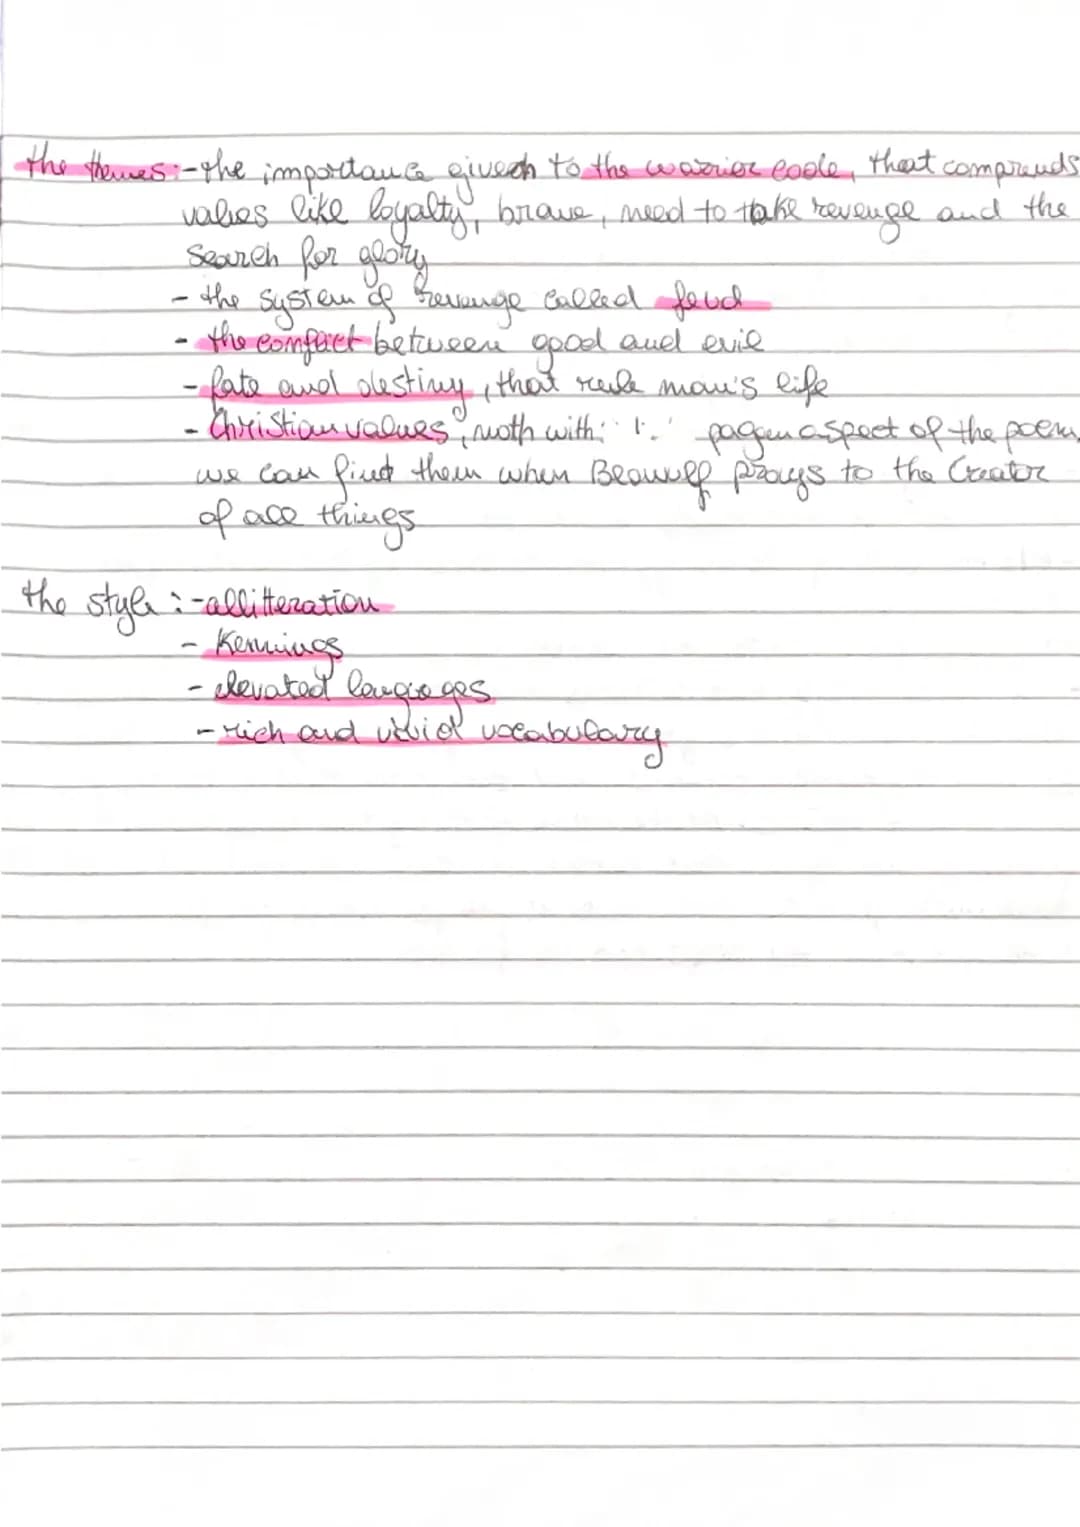 the themes:-the importance given to the warrior code, that comprends
values like loyalty, brave, need to take revenge and the
search for glory
- the system of revenge called feud
- the conflict between good and evil
- fate and destiny, that rule man's life
- Christian values, with pagan aspect of the poem,
we can find them when Beowulf prays to the Creator
of all things
the style:-allitteration
- Kennings
- elevated languages
- rich and vivid vocabulary